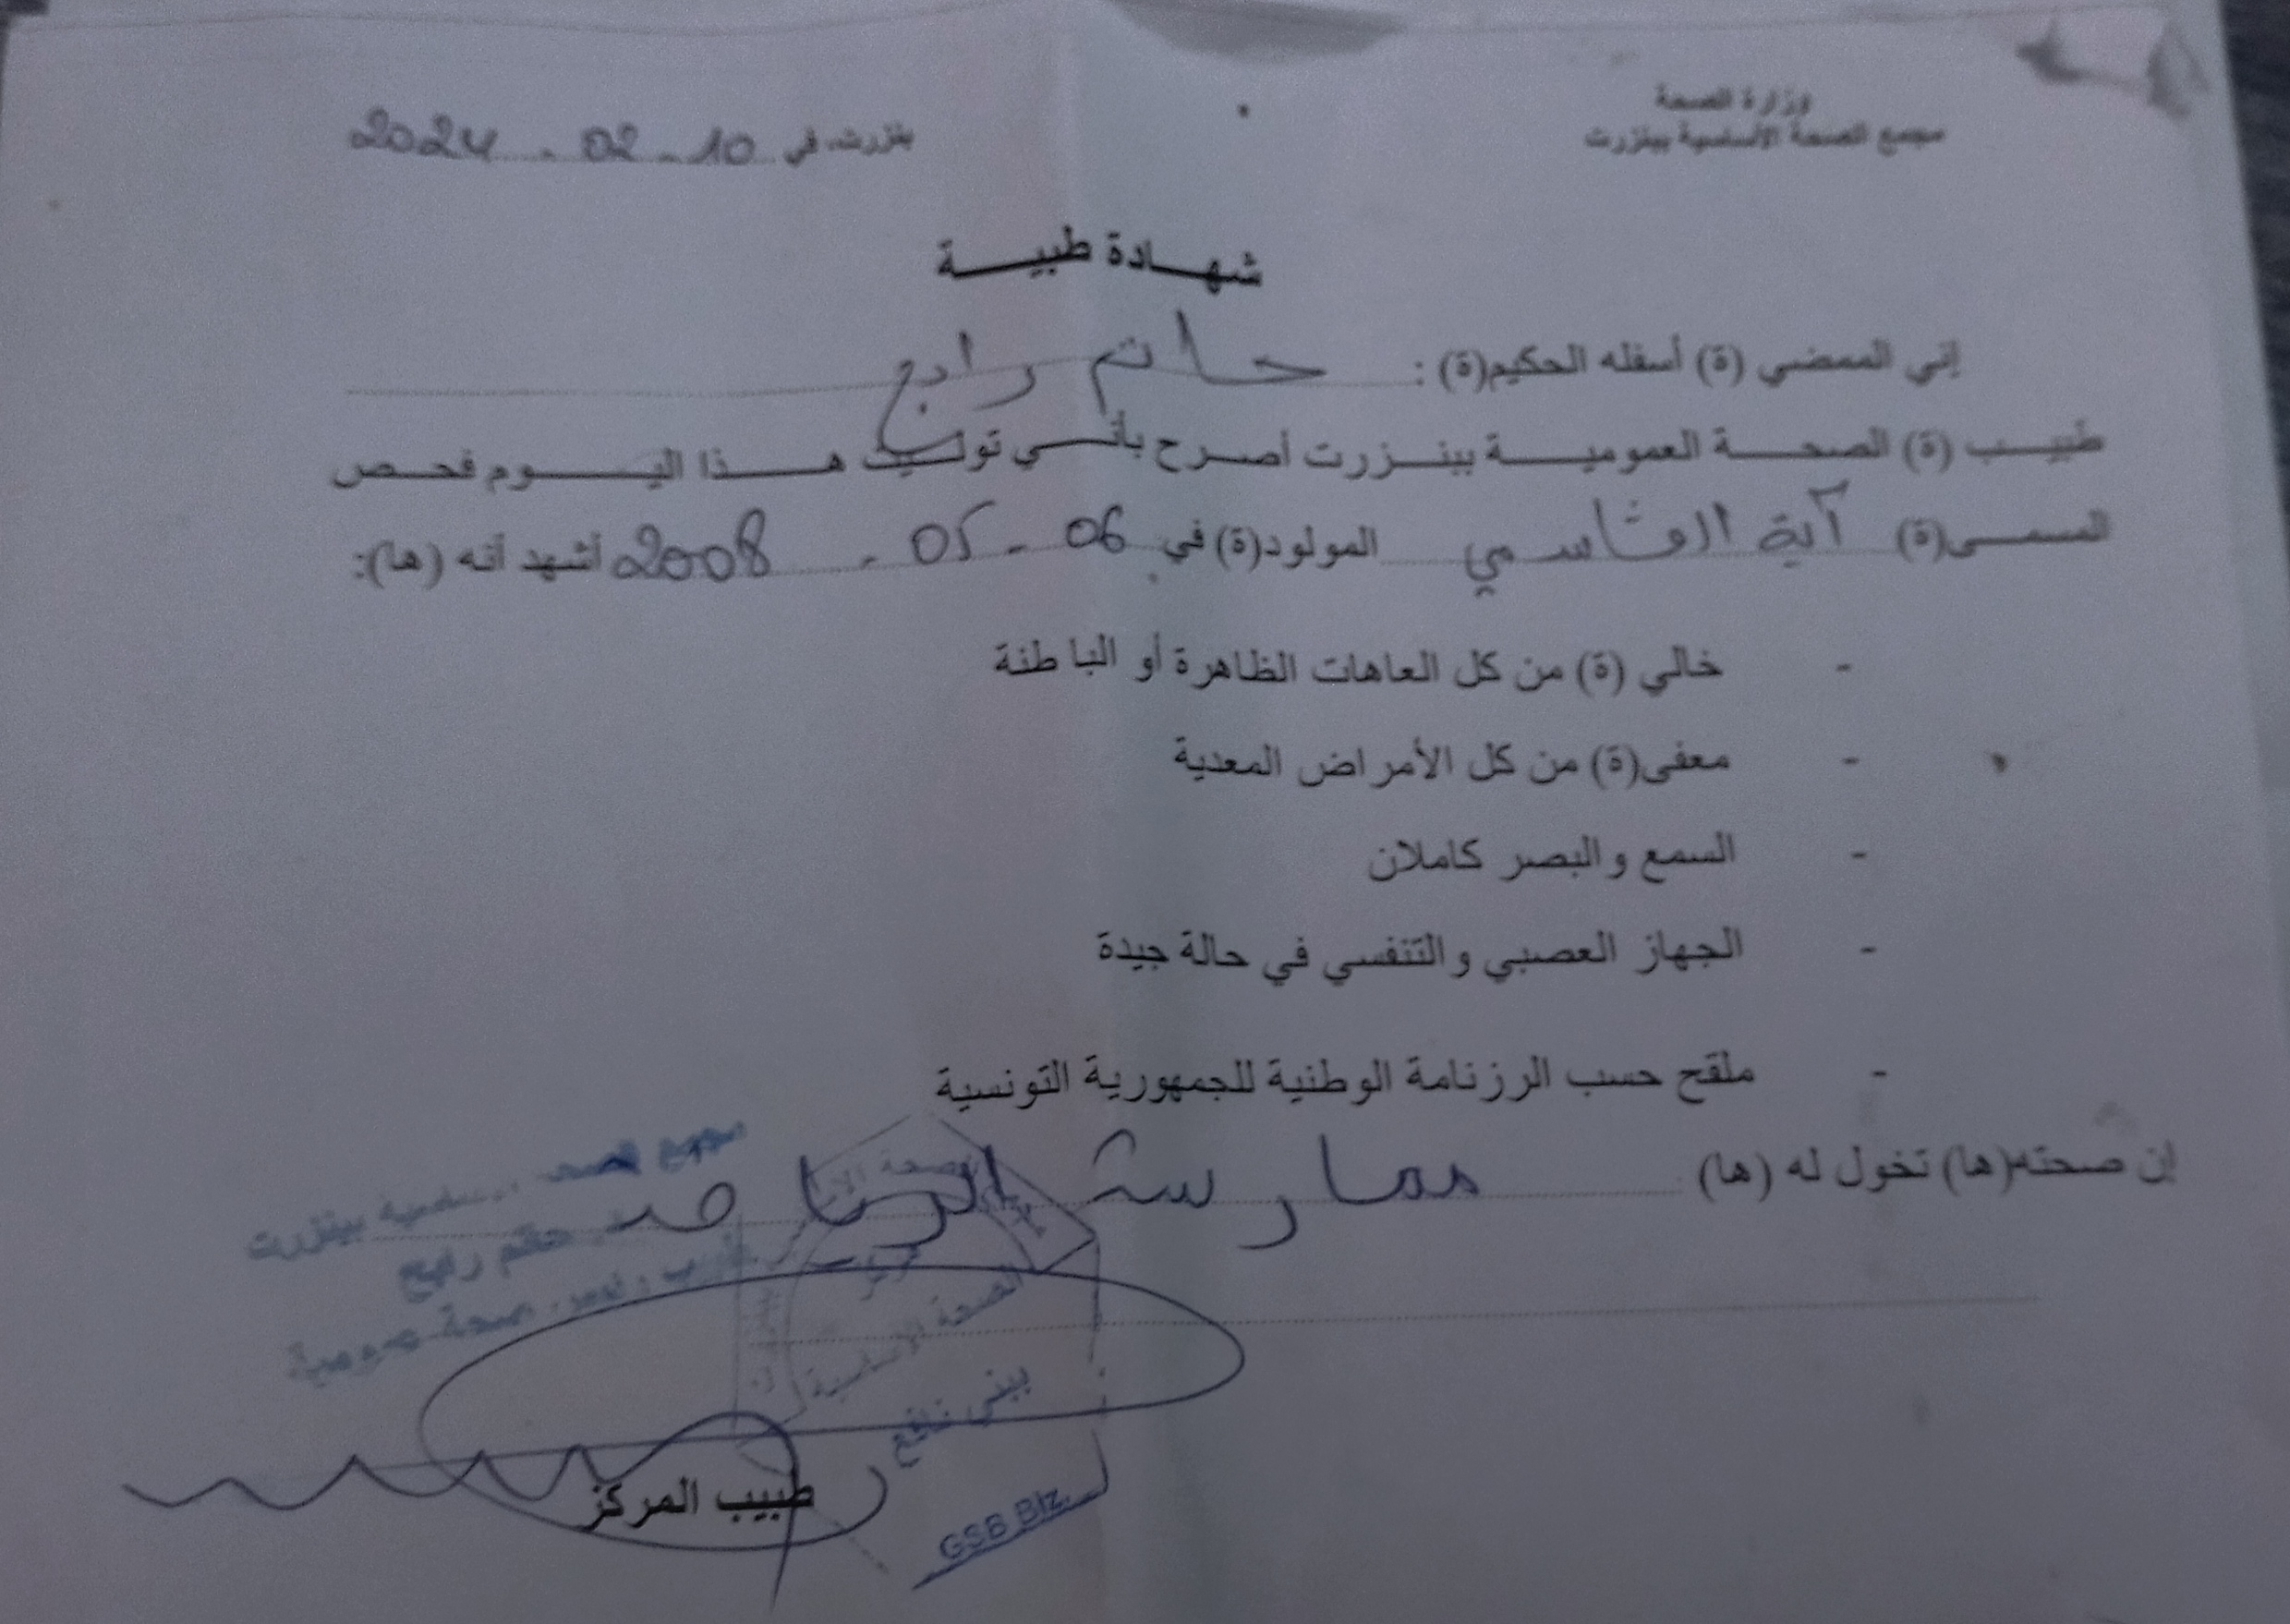 وزارة الصحة
مجمع الصحة الأساسية ببنزرت
بنزرت، في 10 - 02 - 2024
شهـــادة طبيـــــة
إني الممضي (ة) أسفله الحكيم(ة) : حاتم رابح
طبيـب (ة) الصحـــة العموميـــة ببنـــزرت أصـرح بأنـــي توليت هـــــذا اليـــــوم فحـص
المسمـــى(ة) آية القاسمي المولود(ة) في 06 - 05 - 2008 أشهد أنه (ها):
- خالي (ة) من كل العاهات الظاهرة أو الباطنة
- معفى(ة) من كل الأمراض المعدية
- السمع والبصر كاملان
- الجهاز العصبي والتنفسي في حالة جيدة
- ملقح حسب الرزنامة الوطنية للجمهورية التونسية
إن صحته(ها) تخول له (ها) ممارسة الرياضة
مجمع الصحة الأساسية ببنزرت
د. حاتم رابح
طبيب صحة عمومية
مركز
الصحة الأساسية
بني نافع
طبيب المركز
GSB Biz.